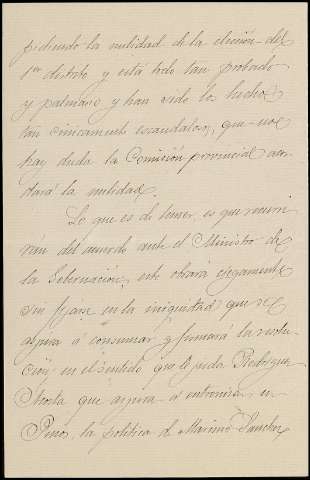 pidiendo la nulidad de la elección del
1er distrito y está todo tan probado
y palmario y han sido los hechos
tan cínicamente escandalosos, que no
hay duda la Comisión provincial acor
dará la nulidad.
Lo que es de temer, es que recurri
rán del acuerdo ante el Ministro de
la Gobernación, este obrará ciegamente
sin fijarse en la iniquidad que se
aspira á consumar y firmará la resolu
ción, en el sentido que le pida Rodríguez
que aspira á entronizar en
Pino, la política de Marcino Sanchez